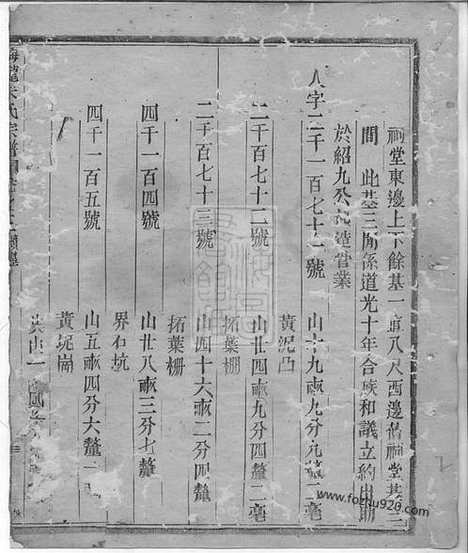 祠堂東邊上下餘基一八尺西邊舊祠堂基三
間 此基三間係道光十年合族和議立約出助
於紹九公起造管業
人字二千一百七十一號 山十九畝九分九釐二毫
黃泥凸
二千一百七十二號 山廿四畝九分四釐二毫
拓葉棚
二千一百七十三號 山四十六畝二分四釐
拓葉棚
四千一百四號 山廿八畝三分七釐
界石坑
四千一百五號 山五畝四分六釐
黃坭崗
共山一
氏宗譜
www.fozhu920.com